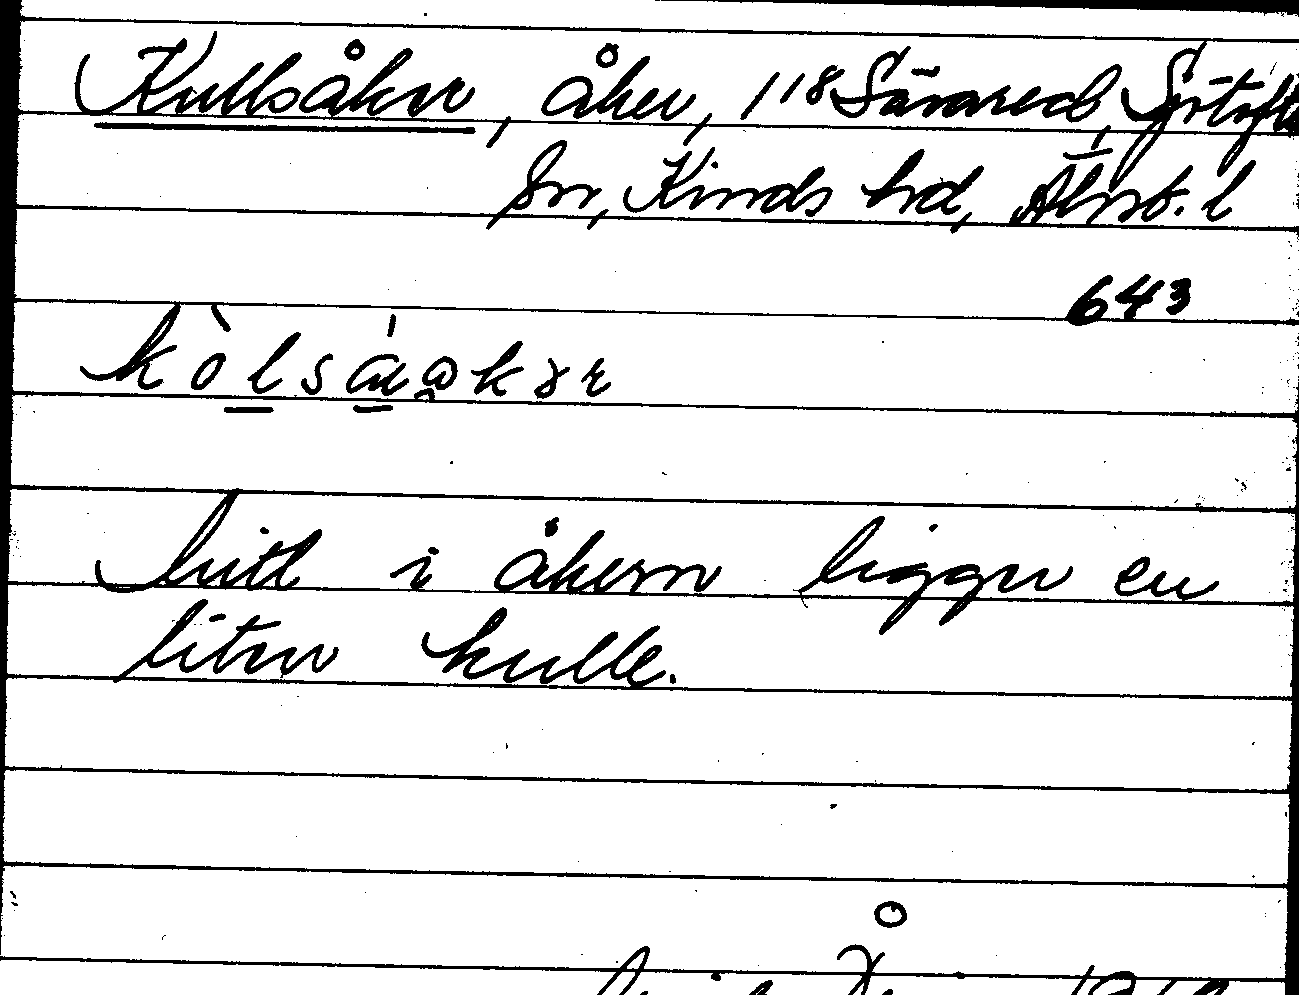 Kullsåker, åker, 118 Sävared,
sn, Kinds hd, Älvsb. l
643
kòlsáukɤr
Mitt i åkern ligger en
liten kulle.